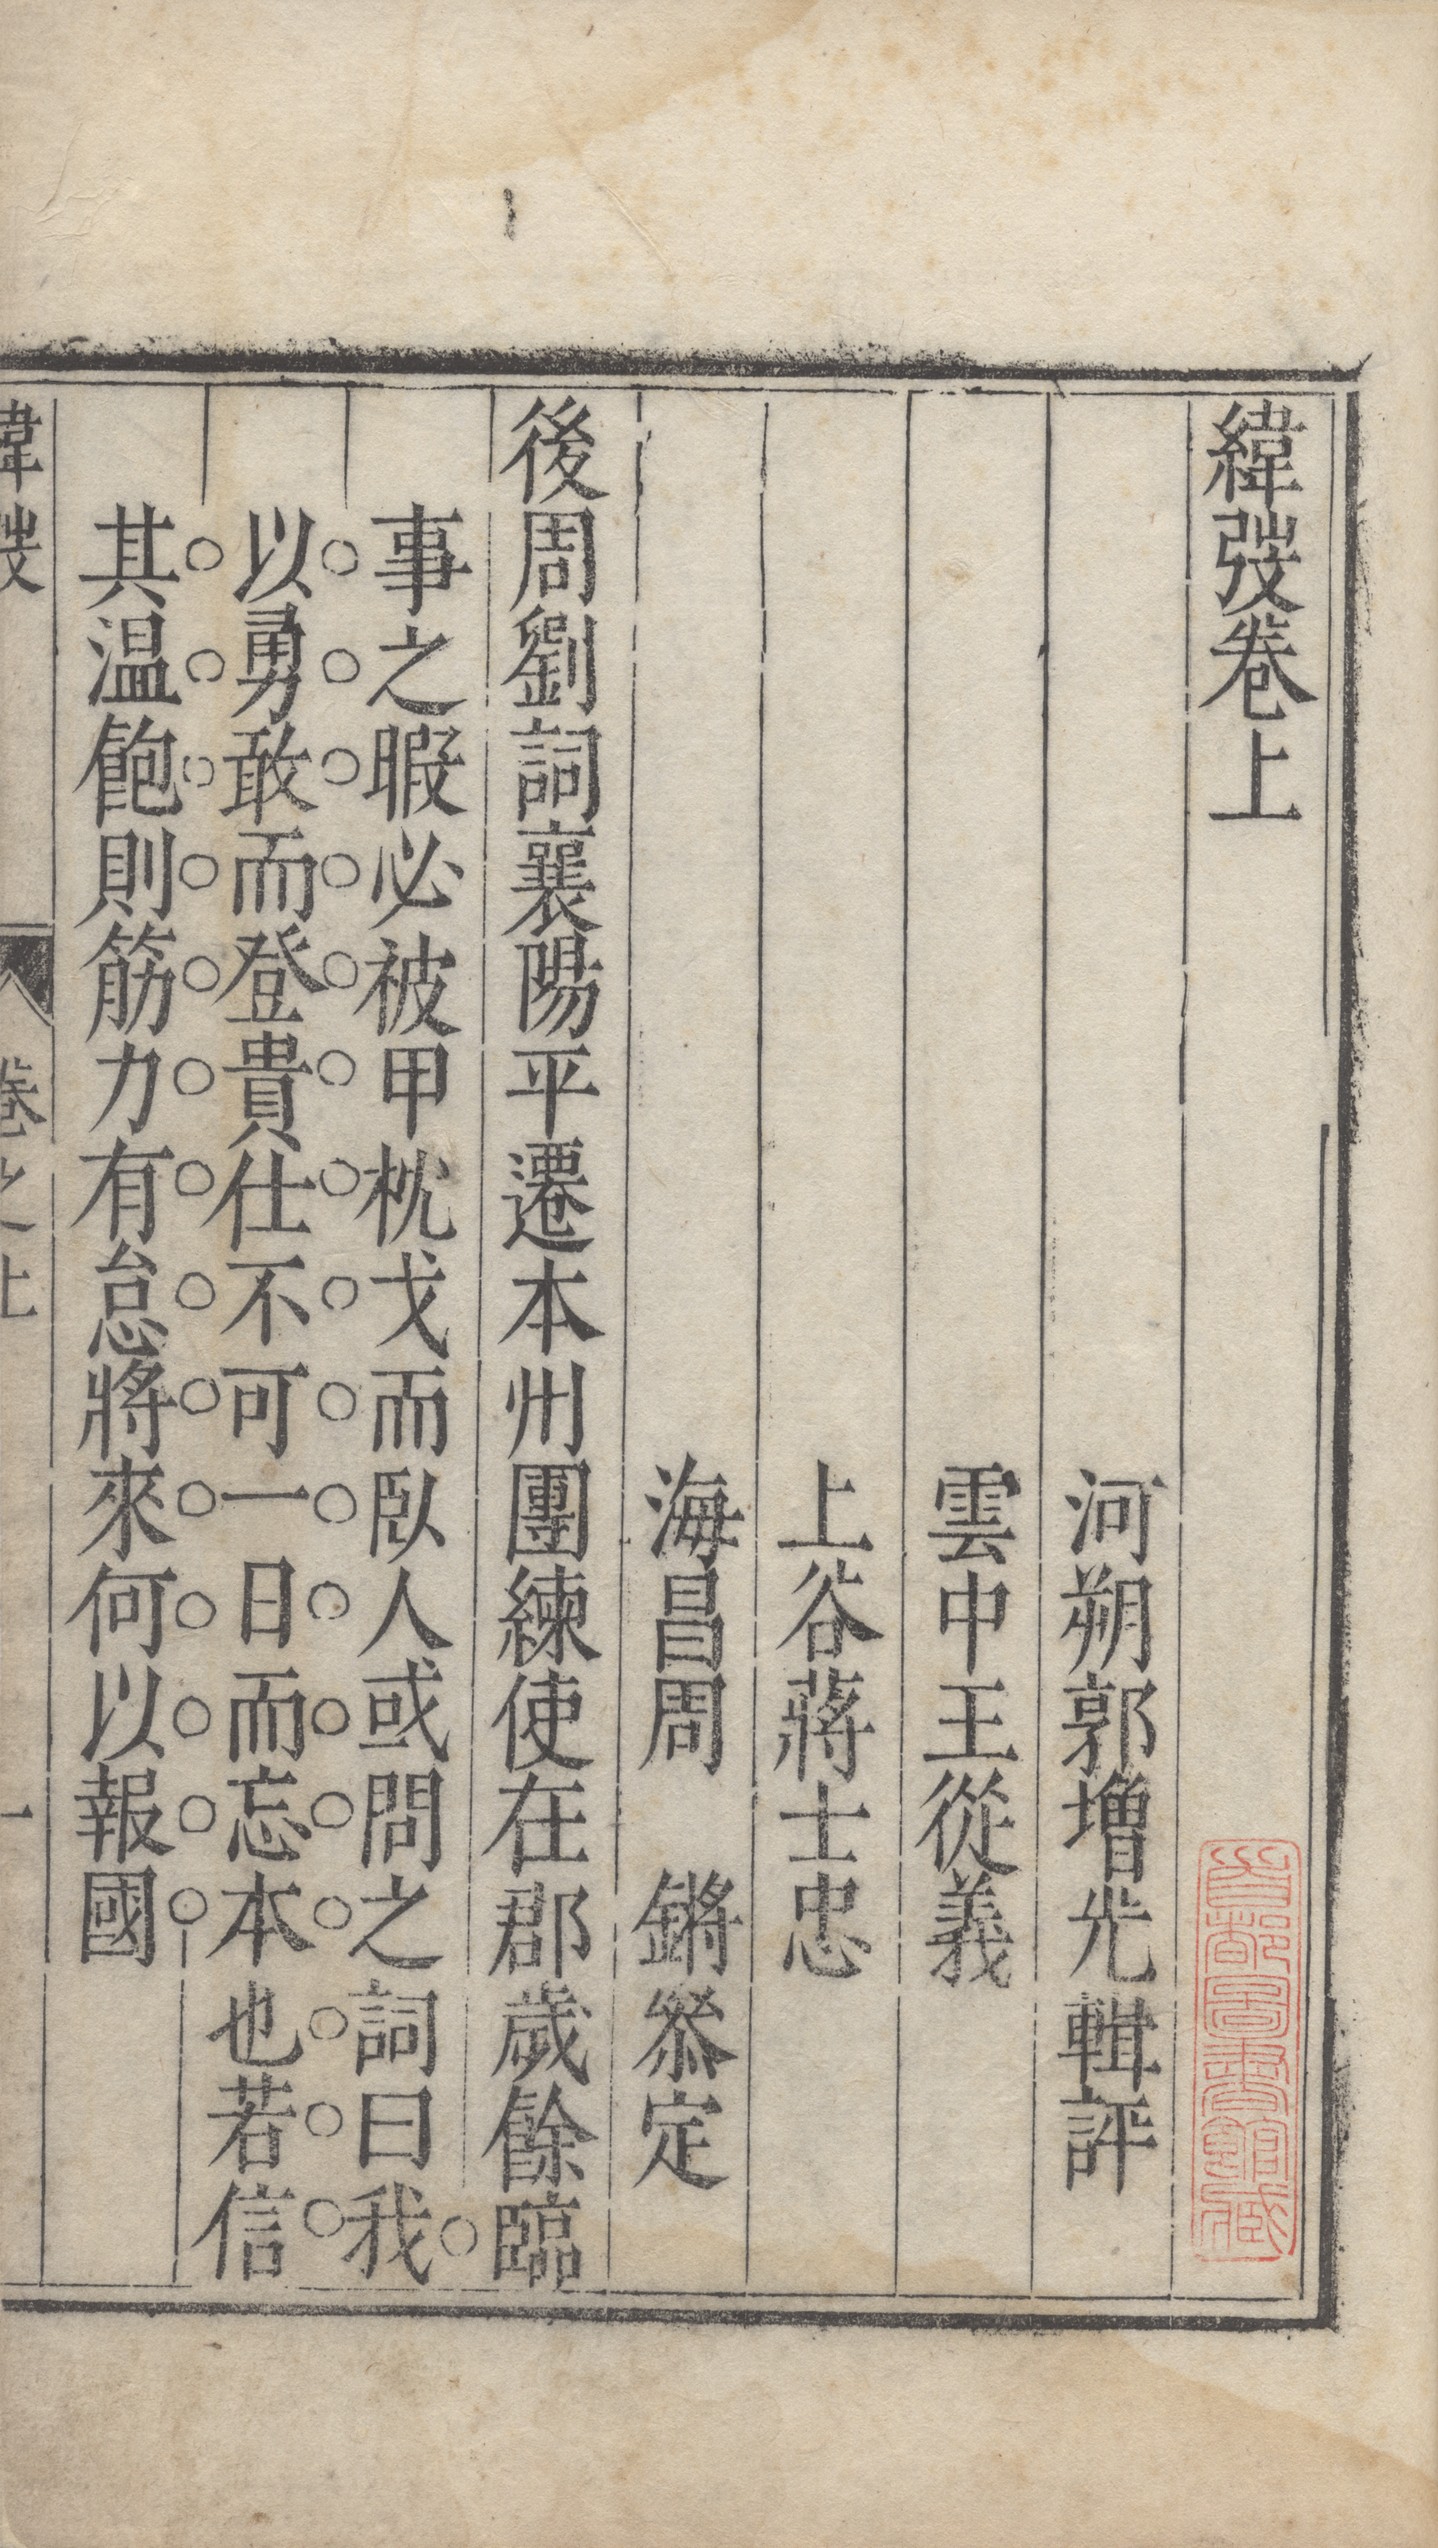 緯弢卷上
河朔郭增光輯評
雲中王從義
上谷蔣士忠
海昌周　鏘叅定
後周劉詞襄陽平遷本州團練使在郡歲餘臨
事之暇必被甲枕戈而臥人或問之詞曰我
以勇敢而登貴仕不可一日而忘本也若信
其温飽則筋力有怠將來何以報國
卷之上
一
首都圖書館藏